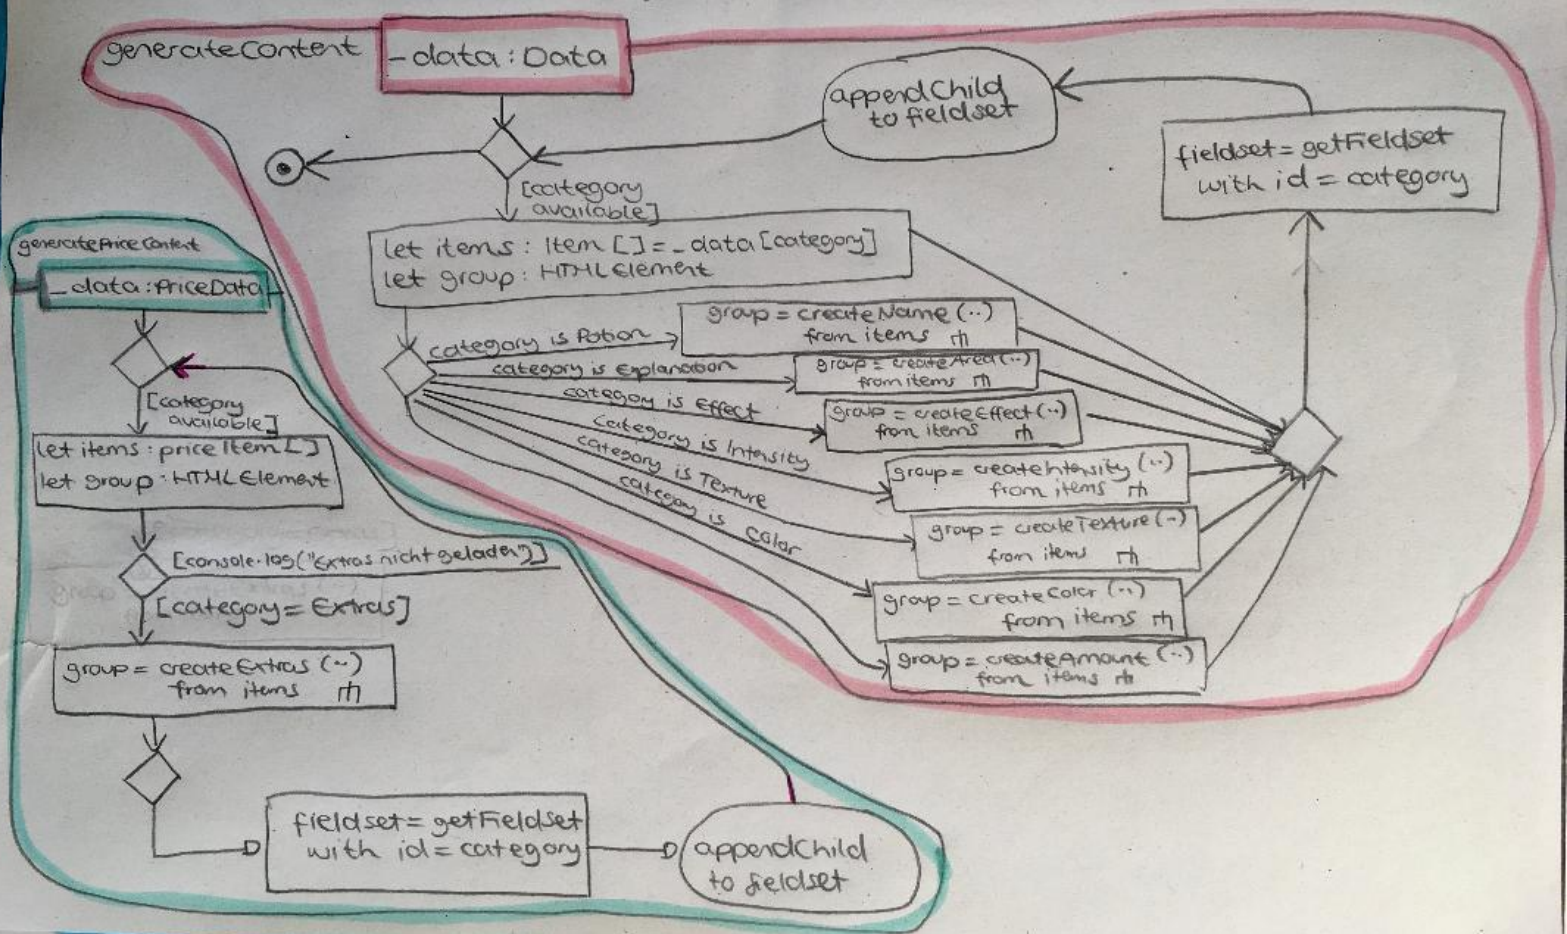 generateContent
_data: Data
appendChild
to fieldset
fieldset = getFieldset
with id = category
[category
available]
let items: Item[] = _data[category]
let group: HTMLElement
category is Potion
group = createName (..)
from items
category is Explanation
group = createArea (..)
from items
category is Effect
group = createEffect (..)
from items
category is Intensity
group = createIntensity (..)
from items
category is Texture
group = createTexture (..)
from items
category is Color
group = createColor (..)
from items
group = createAmount (..)
from items
generatePriceContent
_data: PriceData
[category
available]
let items: priceItem[]
let group: HTMLElement
[console.log("Extras nicht geladen")]
[category = Extras]
group = createExtras (..)
from items
fieldset = getFieldset
with id = category
appendChild
to fieldset